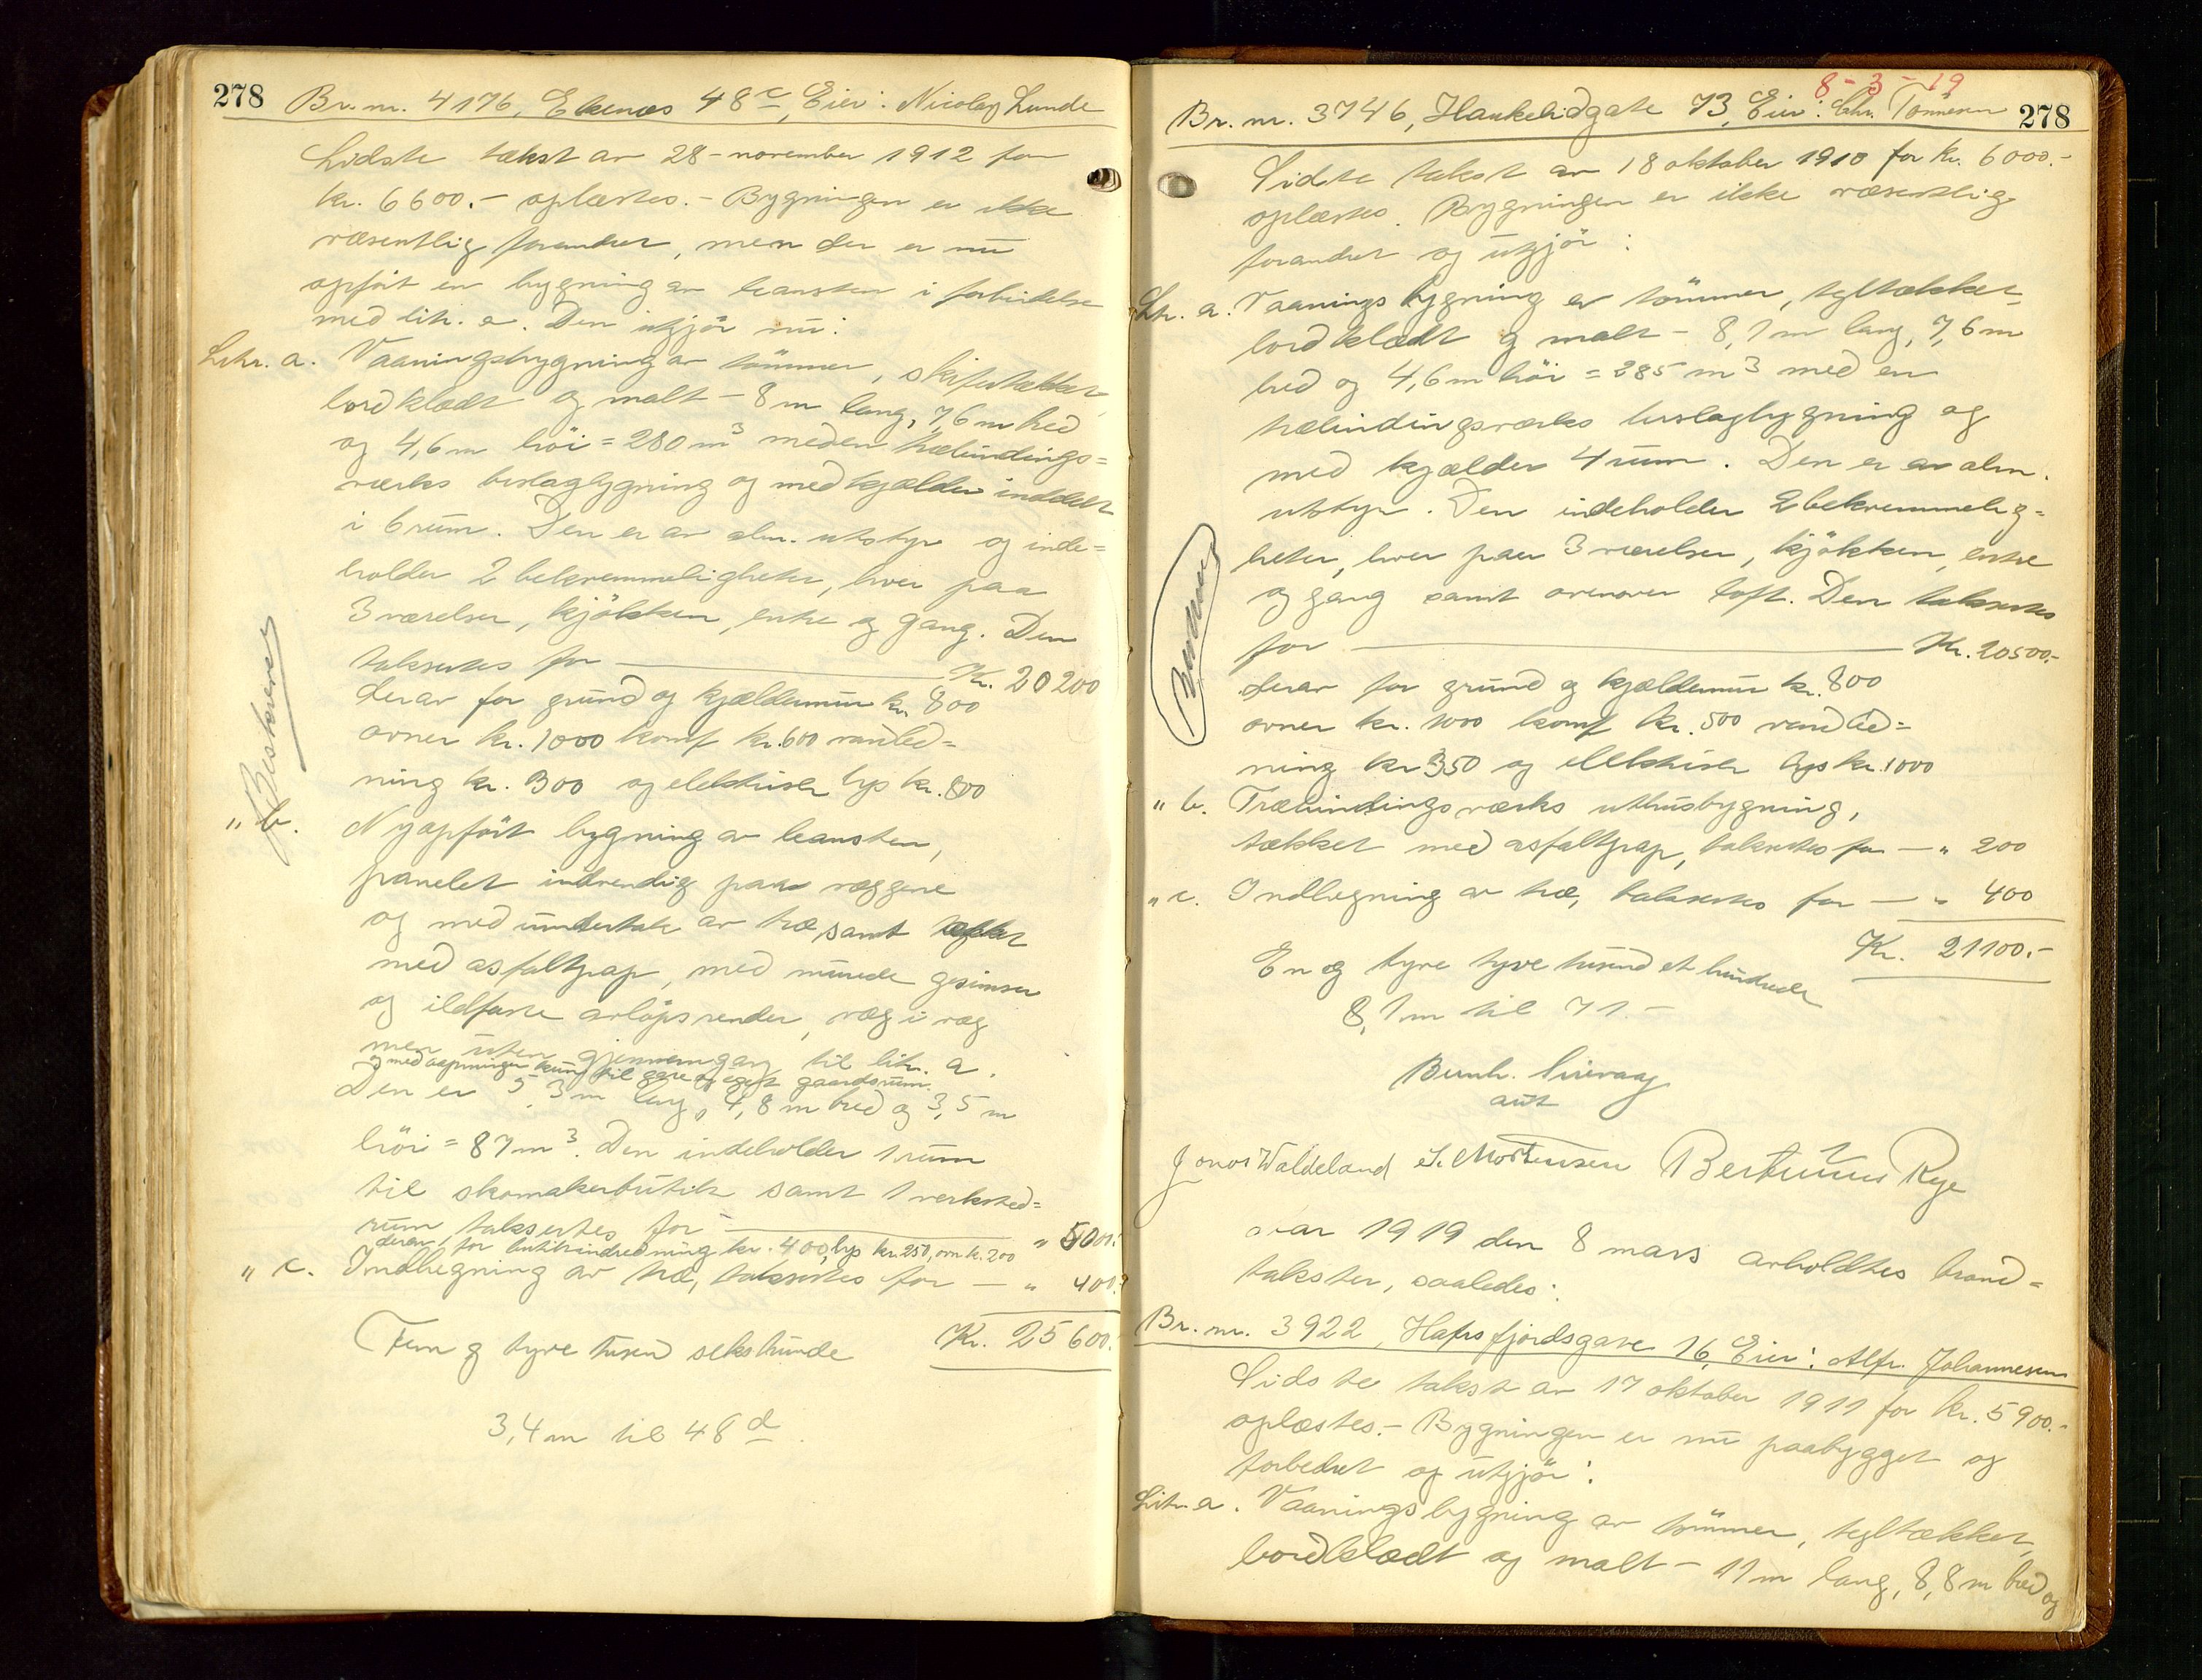 278 Br. nr. 4176, Ekenæs 48c, Eier: Nicolay Lunde
Sidste takst av 28-november 1912 for
kr. 6600.- oplæstes.- Bygningen er ikke
væsentlig forandret, men der er nu
opført en bygning av leansten i forbindelse
med litr. a. Den utgjør nu:
Litr. a. Vaaningsbygning av tømmer, skifertækket,
bordklædt og malt - 8 m lang, 7,6 m bred
og 4,6 m høi = 280 m3 med en træbindings=
verks beslagbygning og med kjælder inddelt
i 6 rum. Den er av alm. utstyr og inde=
holder 2 bekvemmeligheter, hver paa
3 værelser, kjøkken, entre og gang. Den
taksertes for Kr. 20200
derav for grund og kjældermur kr. 800
ovner kr. 1000 komf kr. 600 vandled=
ning kr. 300 og elektrisk lys kr. 800
Beskrevet
" b. Nyopført bygning av leansten,
panelet indvendig paa væggene
og med undertak av træ samt tækket
med asfaltpap, med murede gesimser
og ildfaste avløpsrender, væg i væg
men uten gjennemgang til litr. a.
og med aapninger kun til gate og eget gaardsrum.
Den er 5,3 m lang, 4,8 m bred og 3,5 m
høi = 87 m3. Den indeholder 1 rum
til skomakerbutik samt 1 verksted=
rum, taksertes for " 5000.
derav for butikindredning kr. 400, lys kr. 250, ovn k. 200
" c. Indhegning av træ, taksertes for - " 400.
Fem og tyve tusen sekshunde Kr. 25600.
3,4 m til 48d
8-3-19
Br. nr. 3746, Haukelidgate 73, Eier: Chr. Tønnesen 278
Sidste takst av 18 oktober 1910 for kr. 6000.-
oplæstes. Bygningen er ikke væsentlig
forandret og utgjør:
Litr. a. Vaaningsbygning av tømmer, tegltækket,
bordklædt og malt - 8,1 m lang, 7,6 m
bred og 4,6 m høi = 285 m3 med en
træbindingsverks beslagbygning og
med kjælder 4 rum. Den er av alm.
utstyr. Den indeholder 2 bekvemmelig=
heter, hver paa 3 værelser, kjøkken, entre
og gang samt ovenover loft. Den taksertes
for Kr. 20500.-
derav for grund og kjældermur kr. 800
ovner kr. 1000 komf kr. 500 vandled=
ning kr 350 og elektrisk lys kr. 1000
" b. Træbindingsverks uthusbygning,
tækket med asfaltpap, taksertes for - " 200
" c. Indhegning av træ, taksertes for - " 400
Kr. 21100.-
En og tyve tusend et hundrede
8,1 m til 71.-
Jonas Waldeland S. Mortensen Bertinius Rege
Aar 1919 den 8 mars avholdtes brand=
takster, saaledes:
Br. nr. 3922, Hafrsfjordsgate 16, Eier: Alfr. Johannesen
Sidste takst av 17 oktober 1911 for kr. 5900.-
oplæstes.- Bygningen er nu paabygget og
forbedret og utgjør:
Litr. a. Vaaningsbygning av tømmer, tegltækket,
bordklædt og malt - 11 m lang, 8,8 m bred og